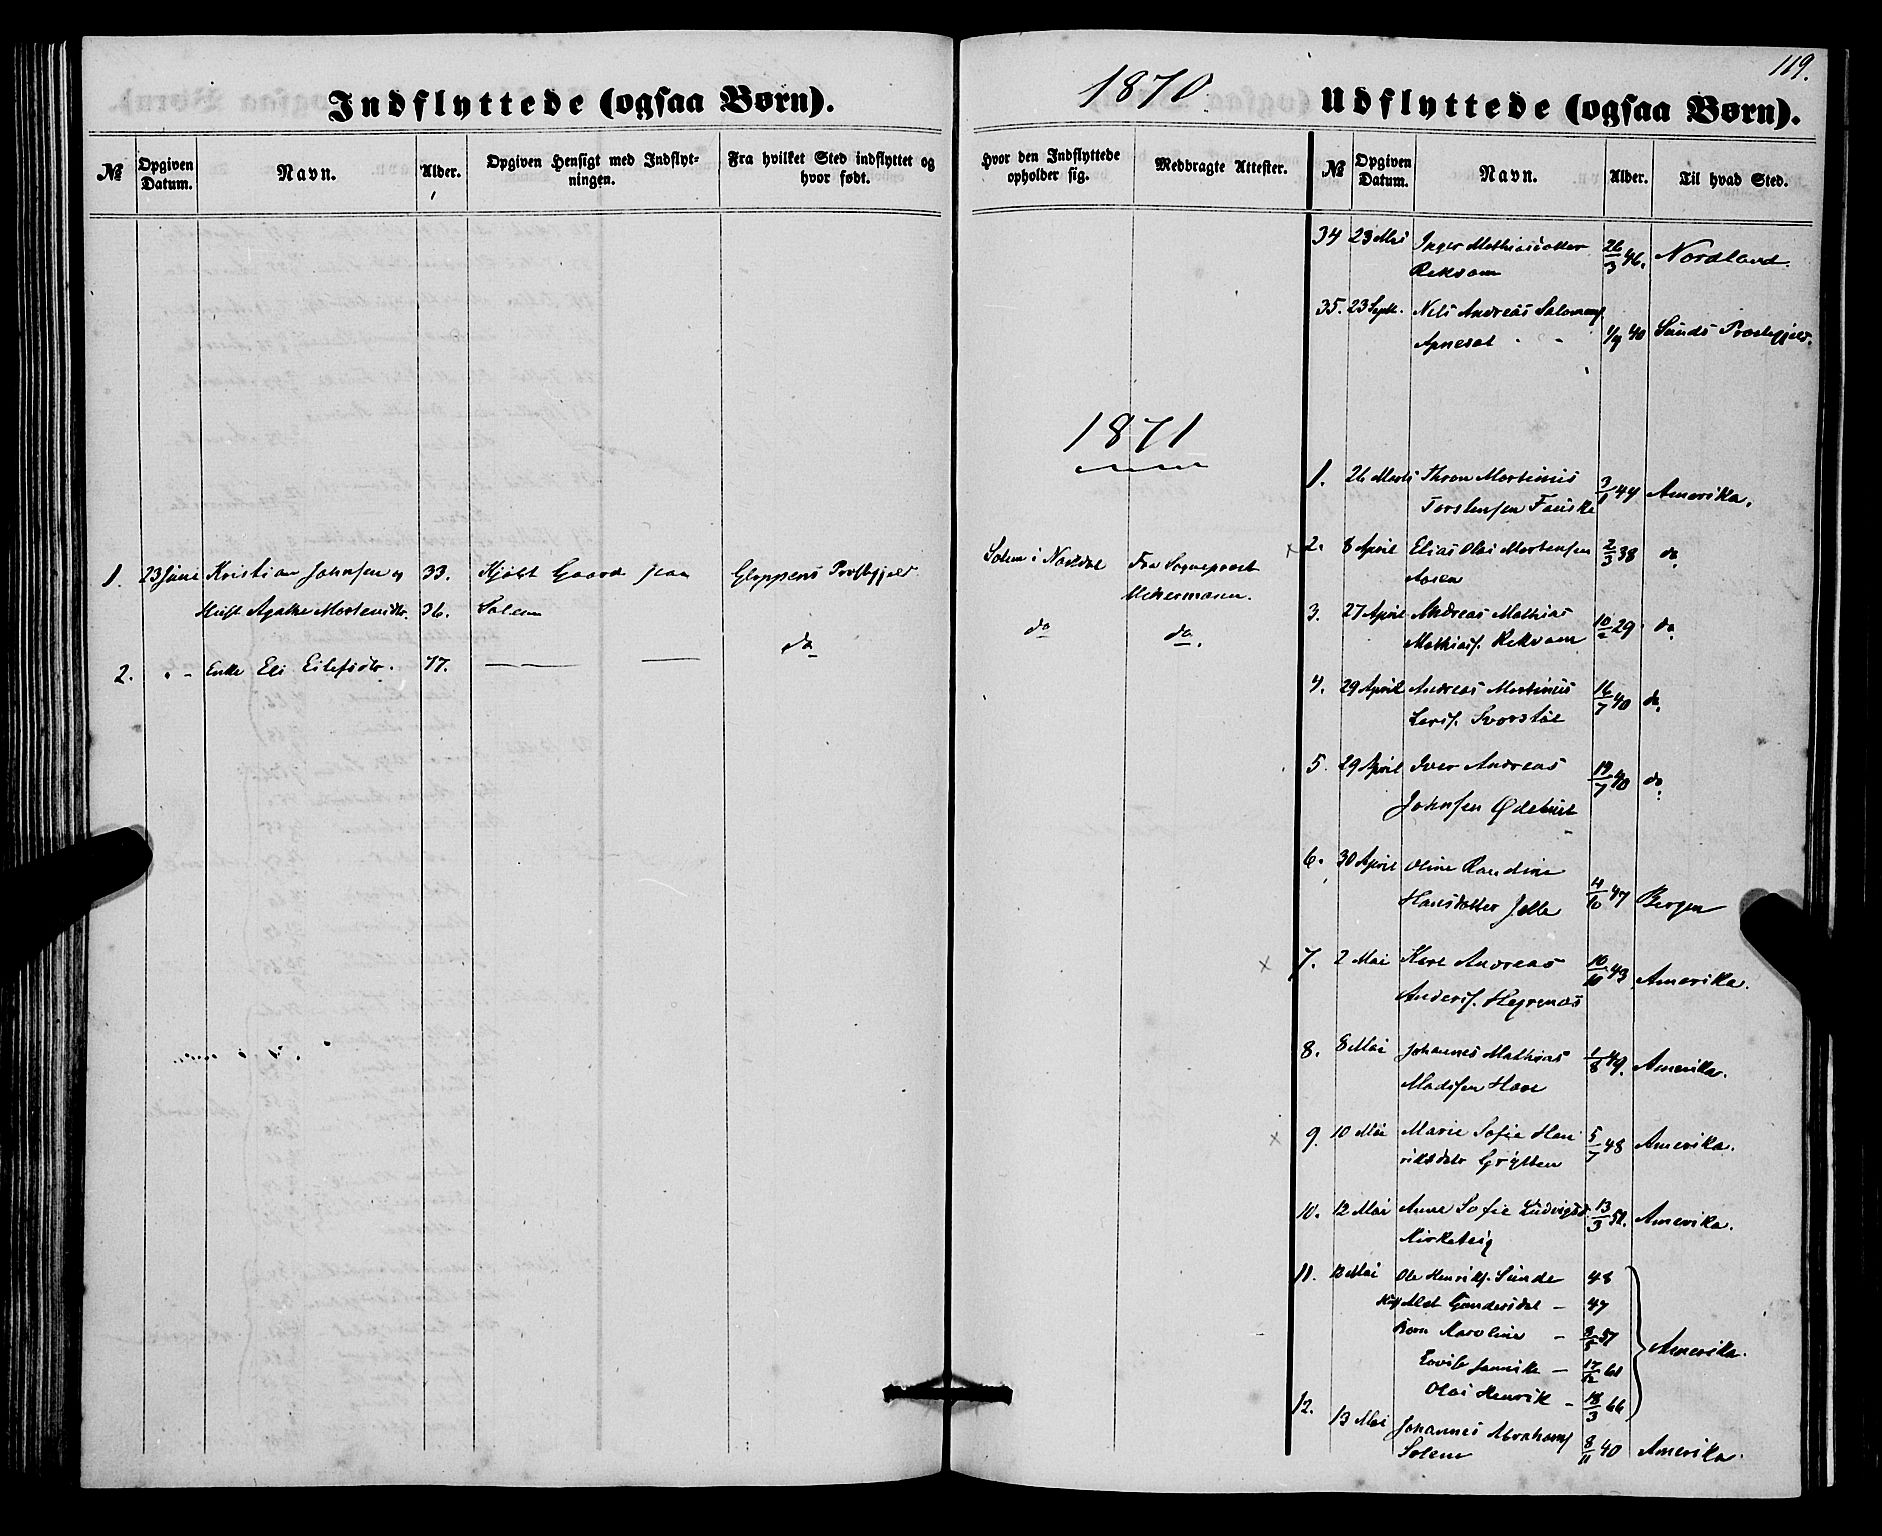 119.
Indflyttede (ogsaa Børn).
1870.
Udflyttede (ogsaa Børn).
№ Opgiven Datum. Navn. Alder. Opgiven Hensigt med Indflytningen. Fra hvilket Sted indflyttet og hvor født. Hvor den Indflyttede opholder sig. Medbragte Attester.
№ Opgiven Datum. Navn. Alder. Til hvad Sted.
1871
1. 23 Juni Kristian Johnsen og 33. Kjøbt Gaard paa Gloppens Præstegjeld Solem i Nordal Fra Sogneprest
Agathe Mortensdtr. 36. Solem
do do do.
2. " - Enke Eli Eilefsdtr. 77.
34 23 Mai Inger Mathiasdotter 26/3 46. Nordland.
Rekdam
35. 23 Septb. Nils Andreas Salomons. 40 Sunds Præstegjeld.
1. 26 Marts Thron Martinus 3/1 44 Amerika.
Torstensen Fauske
2. 8 April Elias Olai Mortensen 2/3 38 do
Aasen
3. 27 April Andreas Mathias 10/2 29 do
Mathias. Rekdam
4. 29 April Andreas Martinus 16/7 40 do
Lars.
5. 29 April Iver Andreas 19/7 40 do
Johnsen
6. 30 April Oline Randine 4/10 47 Bergen
Hansdotter Jelle
× 7. 2 Mai Karl Andreas 10/10 43 Amerika.
Anders. Hegrenæs
8. 8 Mai Johannes Mathias 1/8 49. Amerika.
Madssen
× 9. 10 Mai Marie Sofie Hen- 5/7 48 Amerika.
riksdatr Grytten
10. 12 Mai Anne Sofie Ludvigsd. 13/3 52. Amerika.
Kirketeig
11. 12 Mai Ole Henriks. Sunde 48
Gundersdat. — 47
Børn Karoline — 57
Jannike — 17/12 61 Amerika.
Olai Henrik — 18/3 66
12. 13 Mai Johannes Abrahams. 8/11 40 Amerika.
Solem